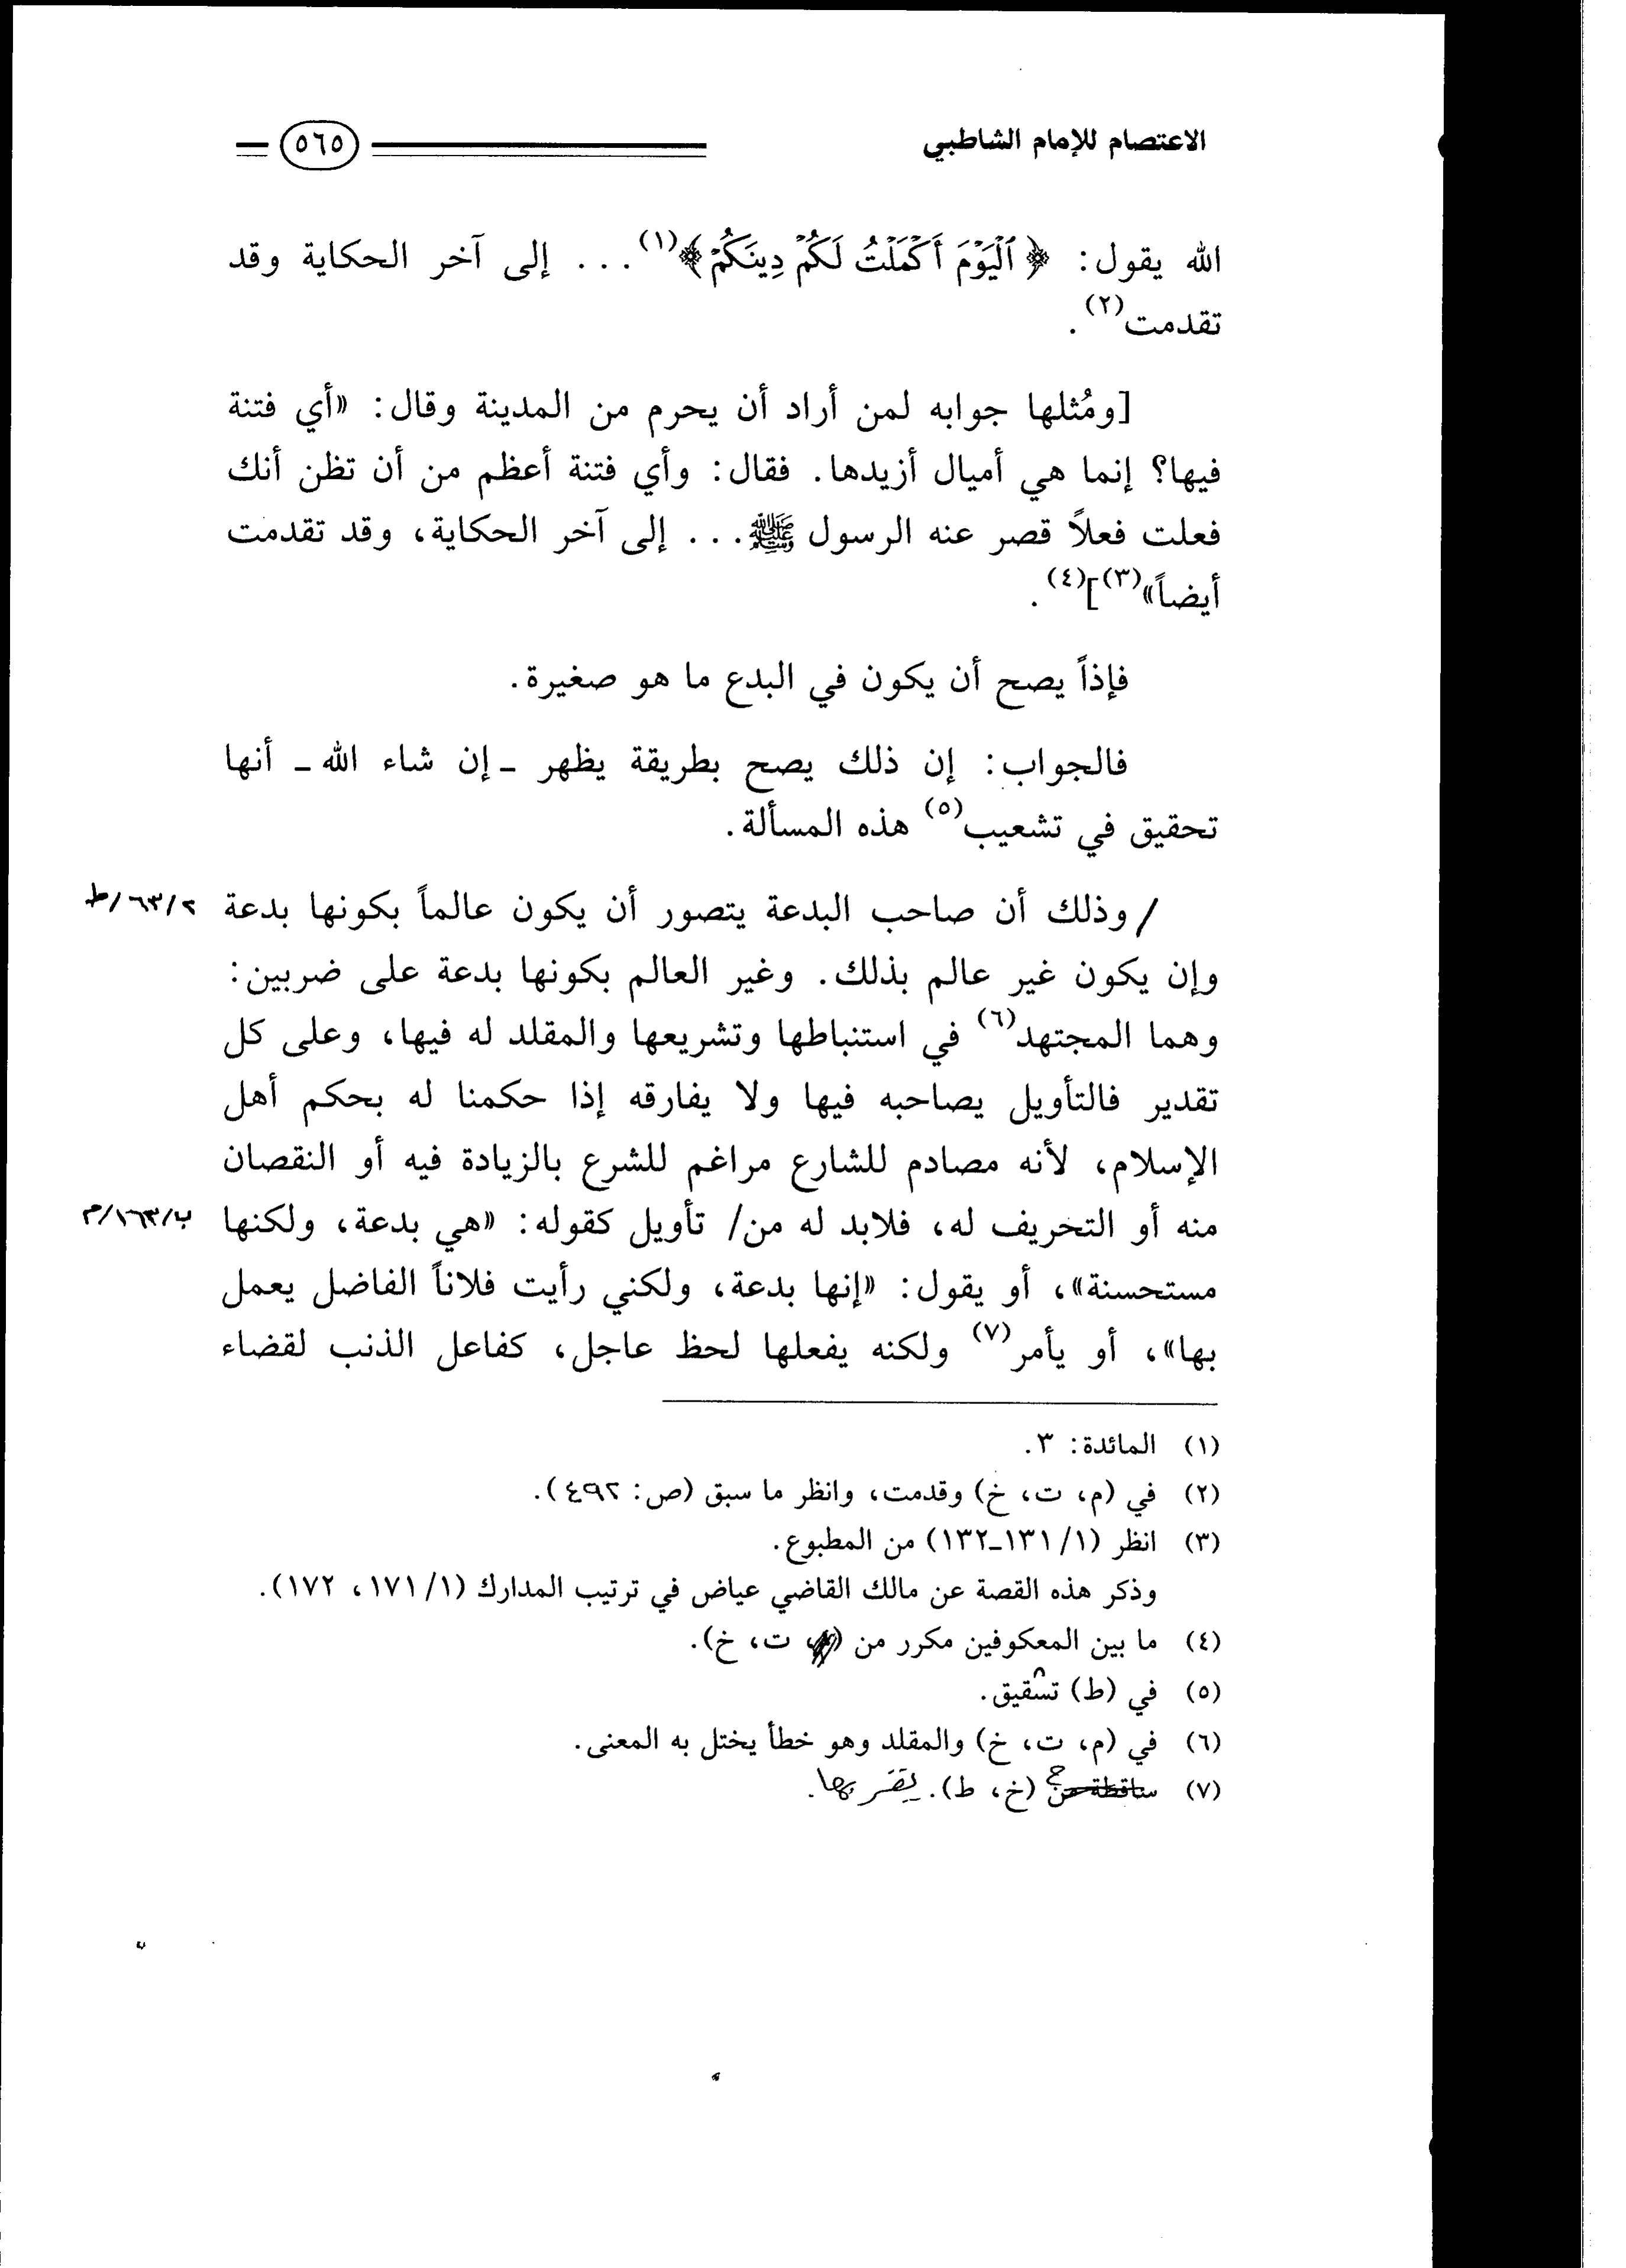 الاعتصام للإمام الشاطبي ٥٦٥
الله يقول: ﴿ٱلۡيَوۡمَ أَكۡمَلۡتُ لَكُمۡ دِينَكُمۡ﴾(١)... إلى آخر الحكاية وقد
تقدمت(٢).
[ومُثلها جوابه لمن أراد أن يحرم من المدينة وقال: «أي فتنة
فيها؟ إنما هي أميال أزيدها. فقال: وأي فتنة أعظم من أن تظن أنك
فعلت فعلاً قصر عنه الرسول ﷺ... إلى آخر الحكاية، وقد تقدمت
أيضاً»(٣)](٤).
فإذاً يصح أن يكون في البدع ما هو صغيرة.
فالجواب: إن ذلك يصح بطريقة يظهر ـ إن شاء الله ـ أنها
تحقيق في تشعيب(٥) هذه المسألة.
/وذلك أن صاحب البدعة يتصور أن يكون عالماً بكونها بدعة ٢/٦٣/ط
وإن يكون غير عالم بذلك. وغير العالم بكونها بدعة على ضربين:
وهما المجتهد(٦) في استنباطها وتشريعها والمقلد له فيها، وعلى كل
تقدير فالتأويل يصاحبه فيها ولا يفارقه إذا حكمنا له بحكم أهل
الإسلام، لأنه مصادم للشارع مراغم للشرع بالزيادة فيه أو النقصان
منه أو التحريف له، فلابد له من/ تأويل كقوله: «هي بدعة، ولكنها ب/١٦٣/م
مستحسنة»، أو يقول: «إنها بدعة، ولكني رأيت فلاناً الفاضل يعمل
بها»، أو يأمر(٧) ولكنه يفعلها لحظ عاجل، كفاعل الذنب لقضاء
(١) المائدة: ٣.
(٢) في (م، ت، خ) وقدمت، وانظر ما سبق (ص: ٤٩٢).
(٣) انظر (١/ ١٣١ـ١٣٢) من المطبوع.
وذكر هذه القصة عن مالك القاضي عياض في ترتيب المدارك (١/ ١٧١، ١٧٢).
(٤) ما بين المعكوفين مكرر من (، ت، خ).
(٥) في (ط) تشقيق.
(٦) في (م، ت، خ) والمقلد وهو خطأ يختل به المعنى.
(٧) ساقطة من (خ، ط). يقر بها.